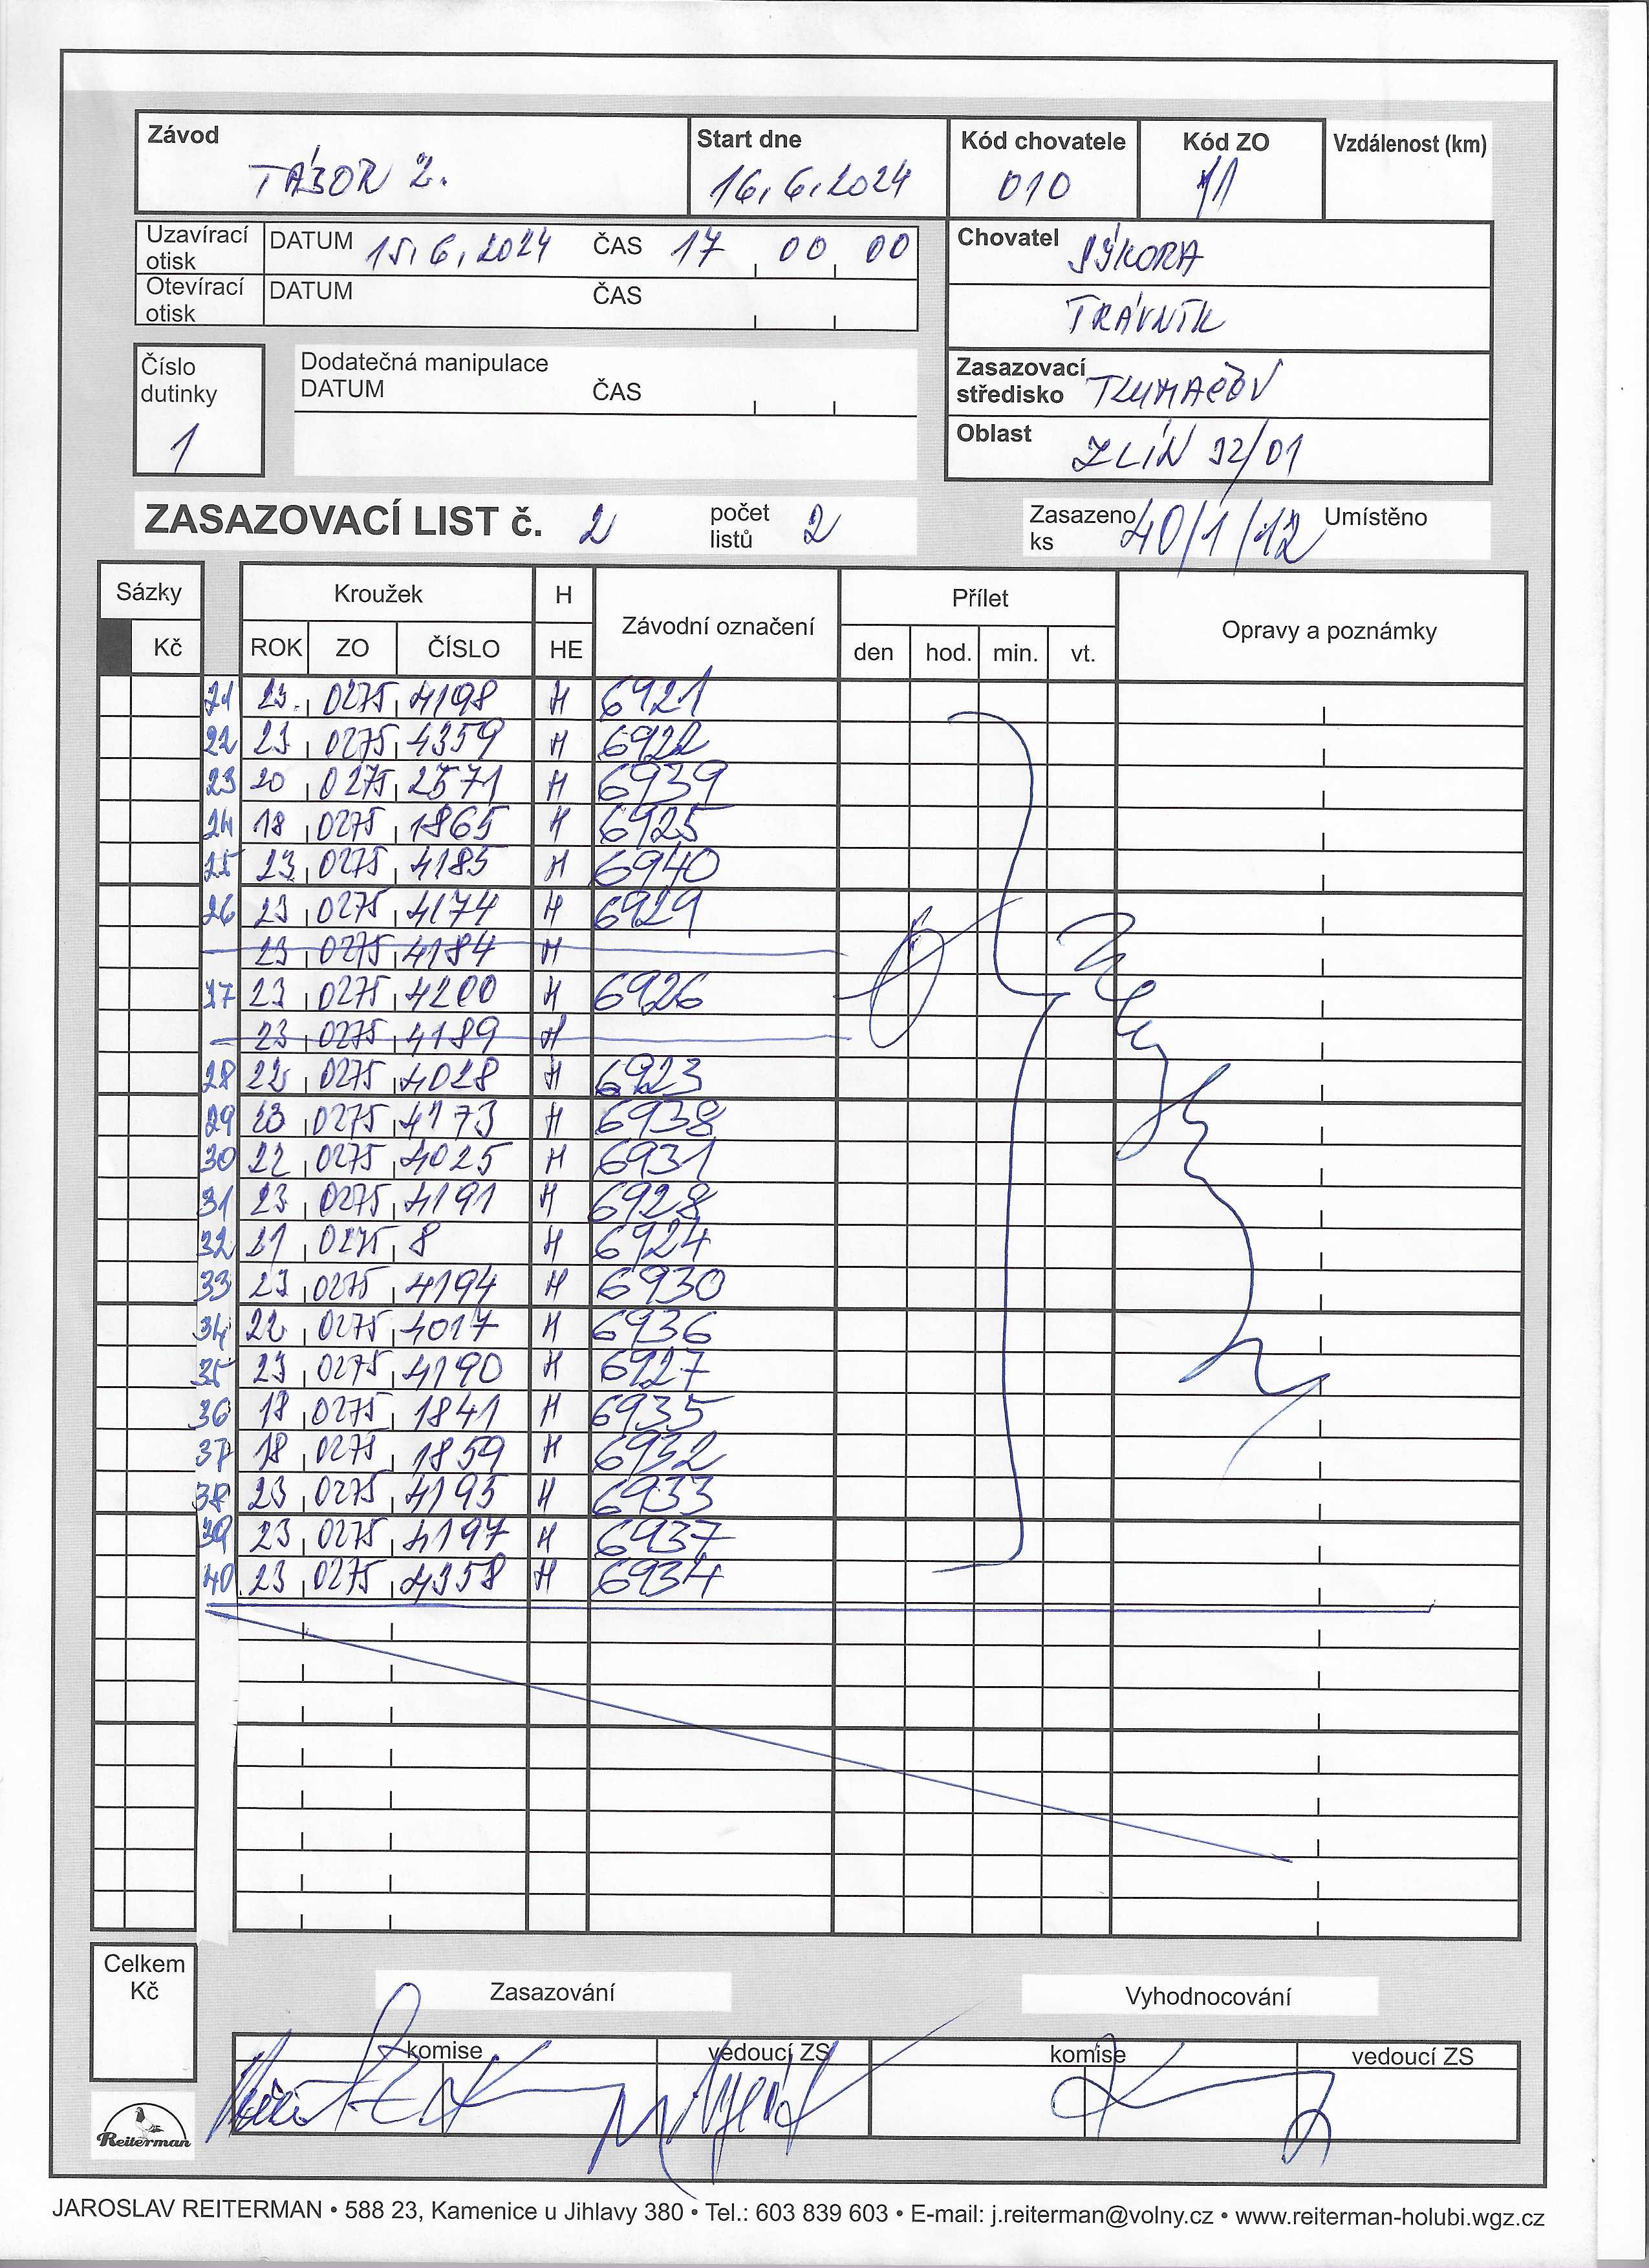 Závod
TÁBOR 2.
Start dne
16.6.2024
Kód chovatele
010
Kód ZO
11
Vzdálenost (km)
Uzavírací otisk DATUM 15.6.2024 ČAS 17 00 00
Otevírací otisk DATUM ČAS
Chovatel SÝKORA
TRÁVNÍK
Číslo dutinky
1
Dodatečná manipulace
DATUM ČAS
Zasazovací středisko TLUMAČOV
Oblast ZLÍN 32/01
ZASAZOVACÍ LIST č. 2 počet listů 2
Zasazeno ks 40/1/12 Umístěno
Sázky Kroužek H Závodní označení Přílet Opravy a poznámky
Kč ROK ZO ČÍSLO HE den hod. min. vt.
21 23 0275 4198 H 6921
22 23 0275 4359 H 6922
23 20 0275 2571 H 6939
24 18 0275 1865 H 6925
25 23 0275 4185 H 6940
26 23 0275 4174 H 6929
23 0275 4184 H
27 23 0275 4200 H 6926
23 0275 4189 H
28 22 0275 4028 H 6923
29 23 0275 4173 H 6938
30 22 0275 4025 H 6931
31 23 0275 4191 H 6928
32 21 0275 8 H 6924
33 23 0275 4194 H 6930
34 22 0275 4017 H 6936
35 23 0275 4190 H 6927
36 18 0275 1841 H 6935
37 18 0275 1859 H 6932
38 23 0275 4195 H 6933
39 23 0275 4197 H 6937
40 23 0275 4358 H 6934
Celkem Kč
Zasazování
Vyhodnocování
komise vedoucí ZS komise vedoucí ZS
Reiterman
JAROSLAV REITERMAN • 588 23, Kamenice u Jihlavy 380 • Tel.: 603 839 603 • E-mail: j.reiterman@volny.cz • www.reiterman-holubi.wgz.cz